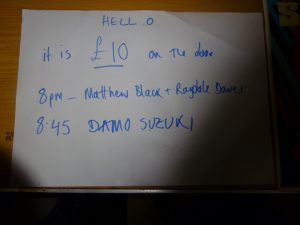 HELLO
it is £10 on the door
8pm - Matthew Black + Ragdale Dawes
8.45 DAMO SUZUKI